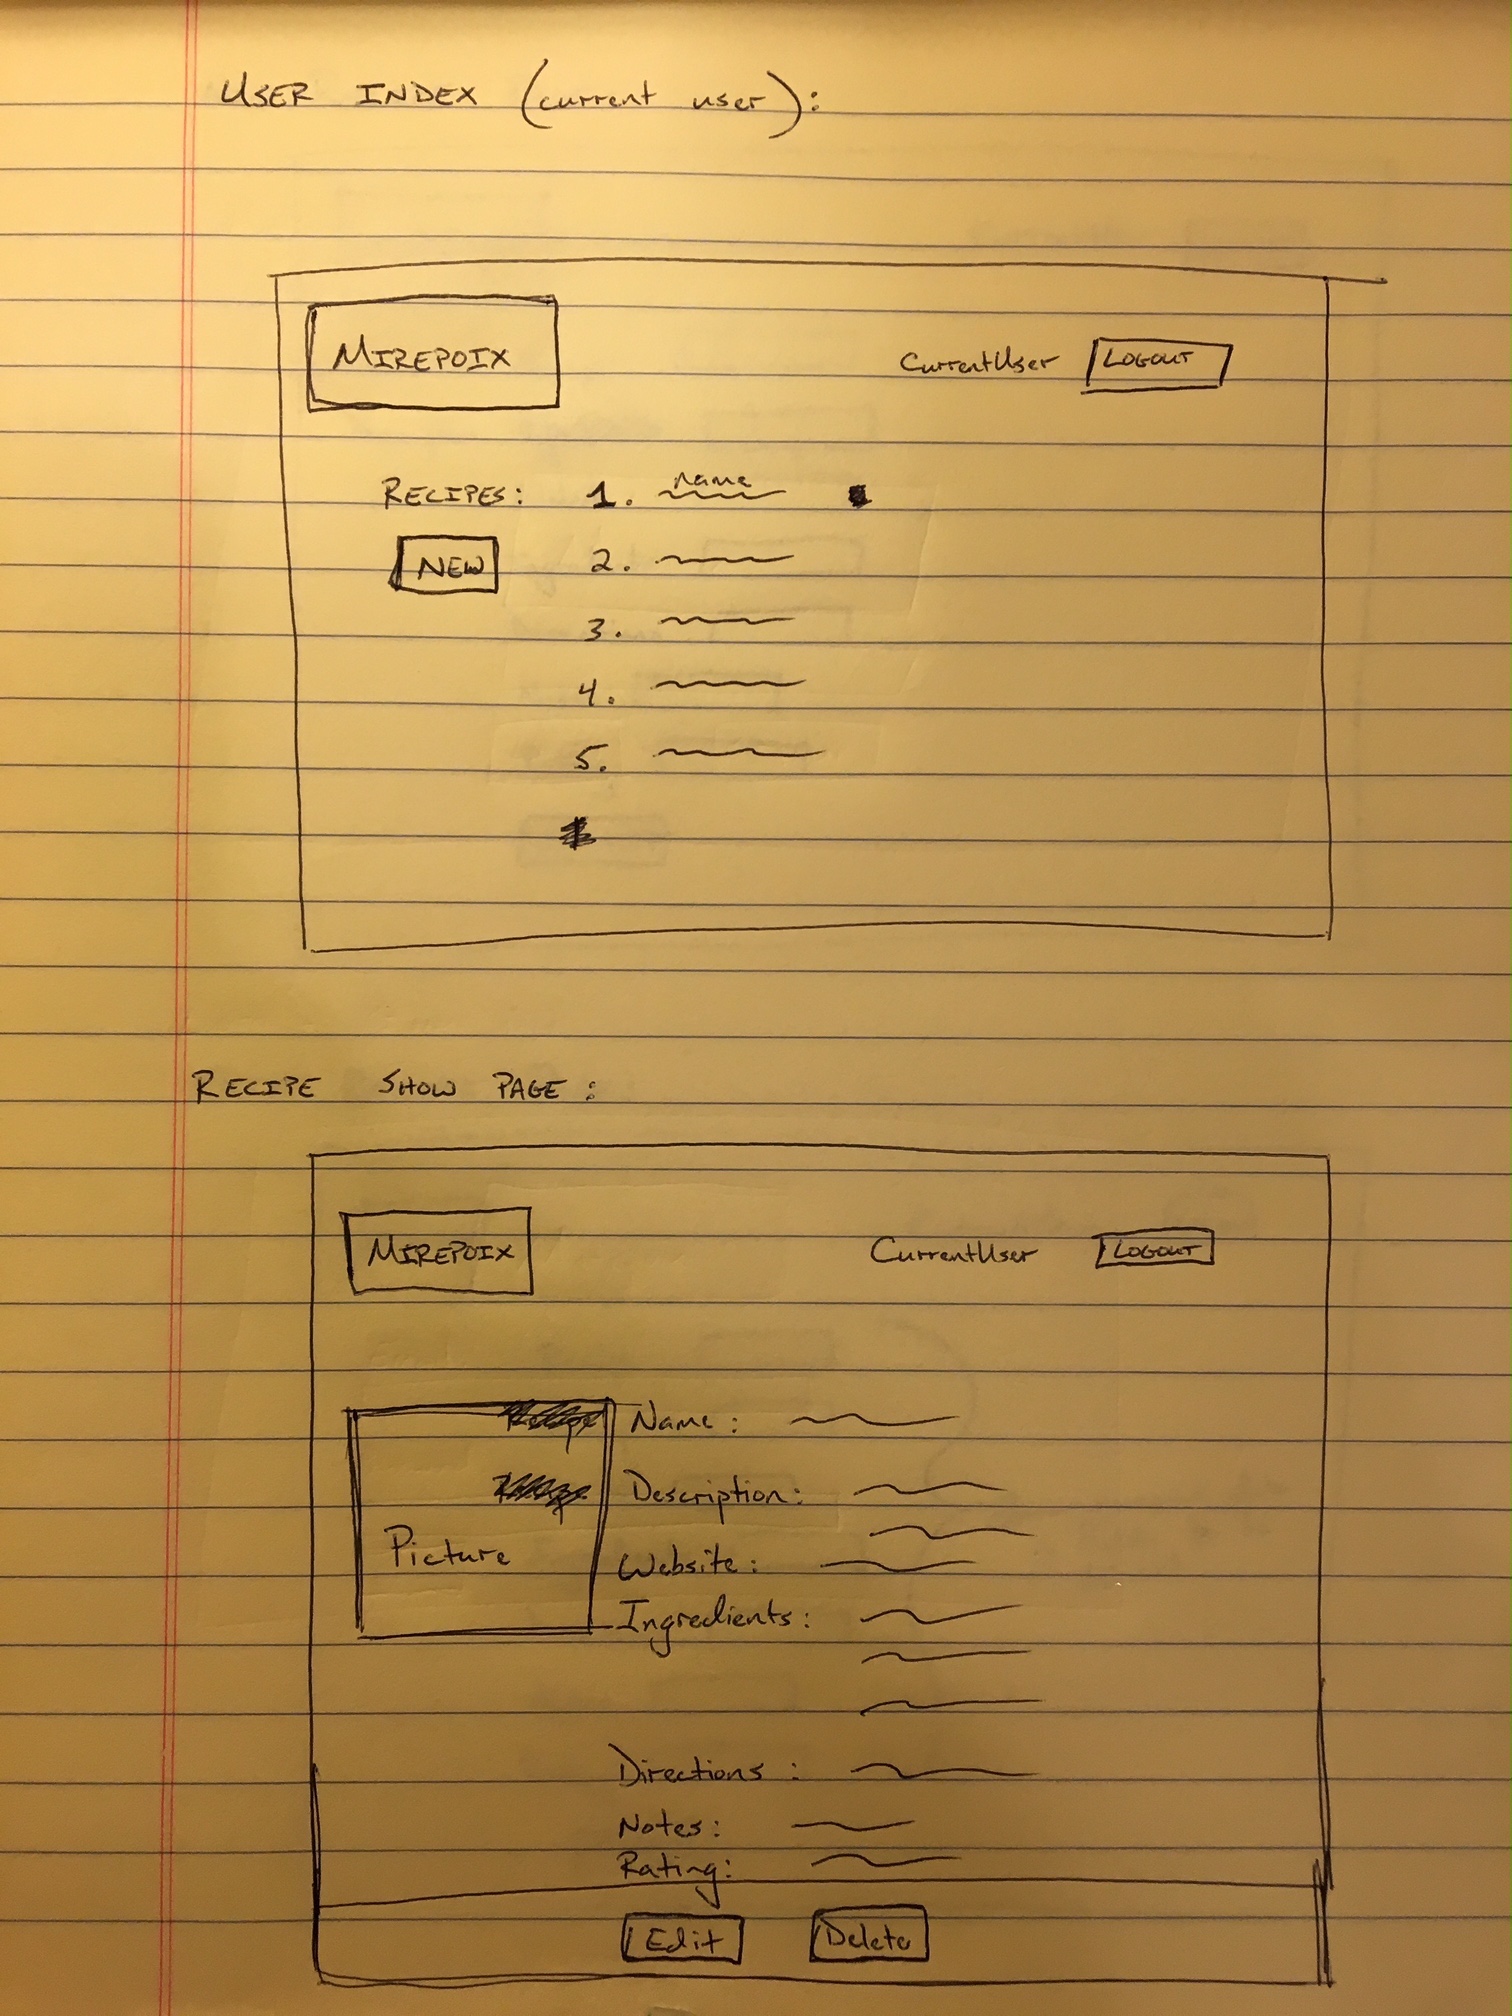 USER INDEX (current user):
MIREPOIX
CurrentUser LOGOUT
RECIPES: 1. name
NEW 2.
3.
4.
5.
RECIPE SHOW PAGE:
MIREPOIX
CurrentUser LOGOUT
Name:
Description:
Picture
Website:
Ingredients:
Directions:
Notes:
Rating:
Edit Delete